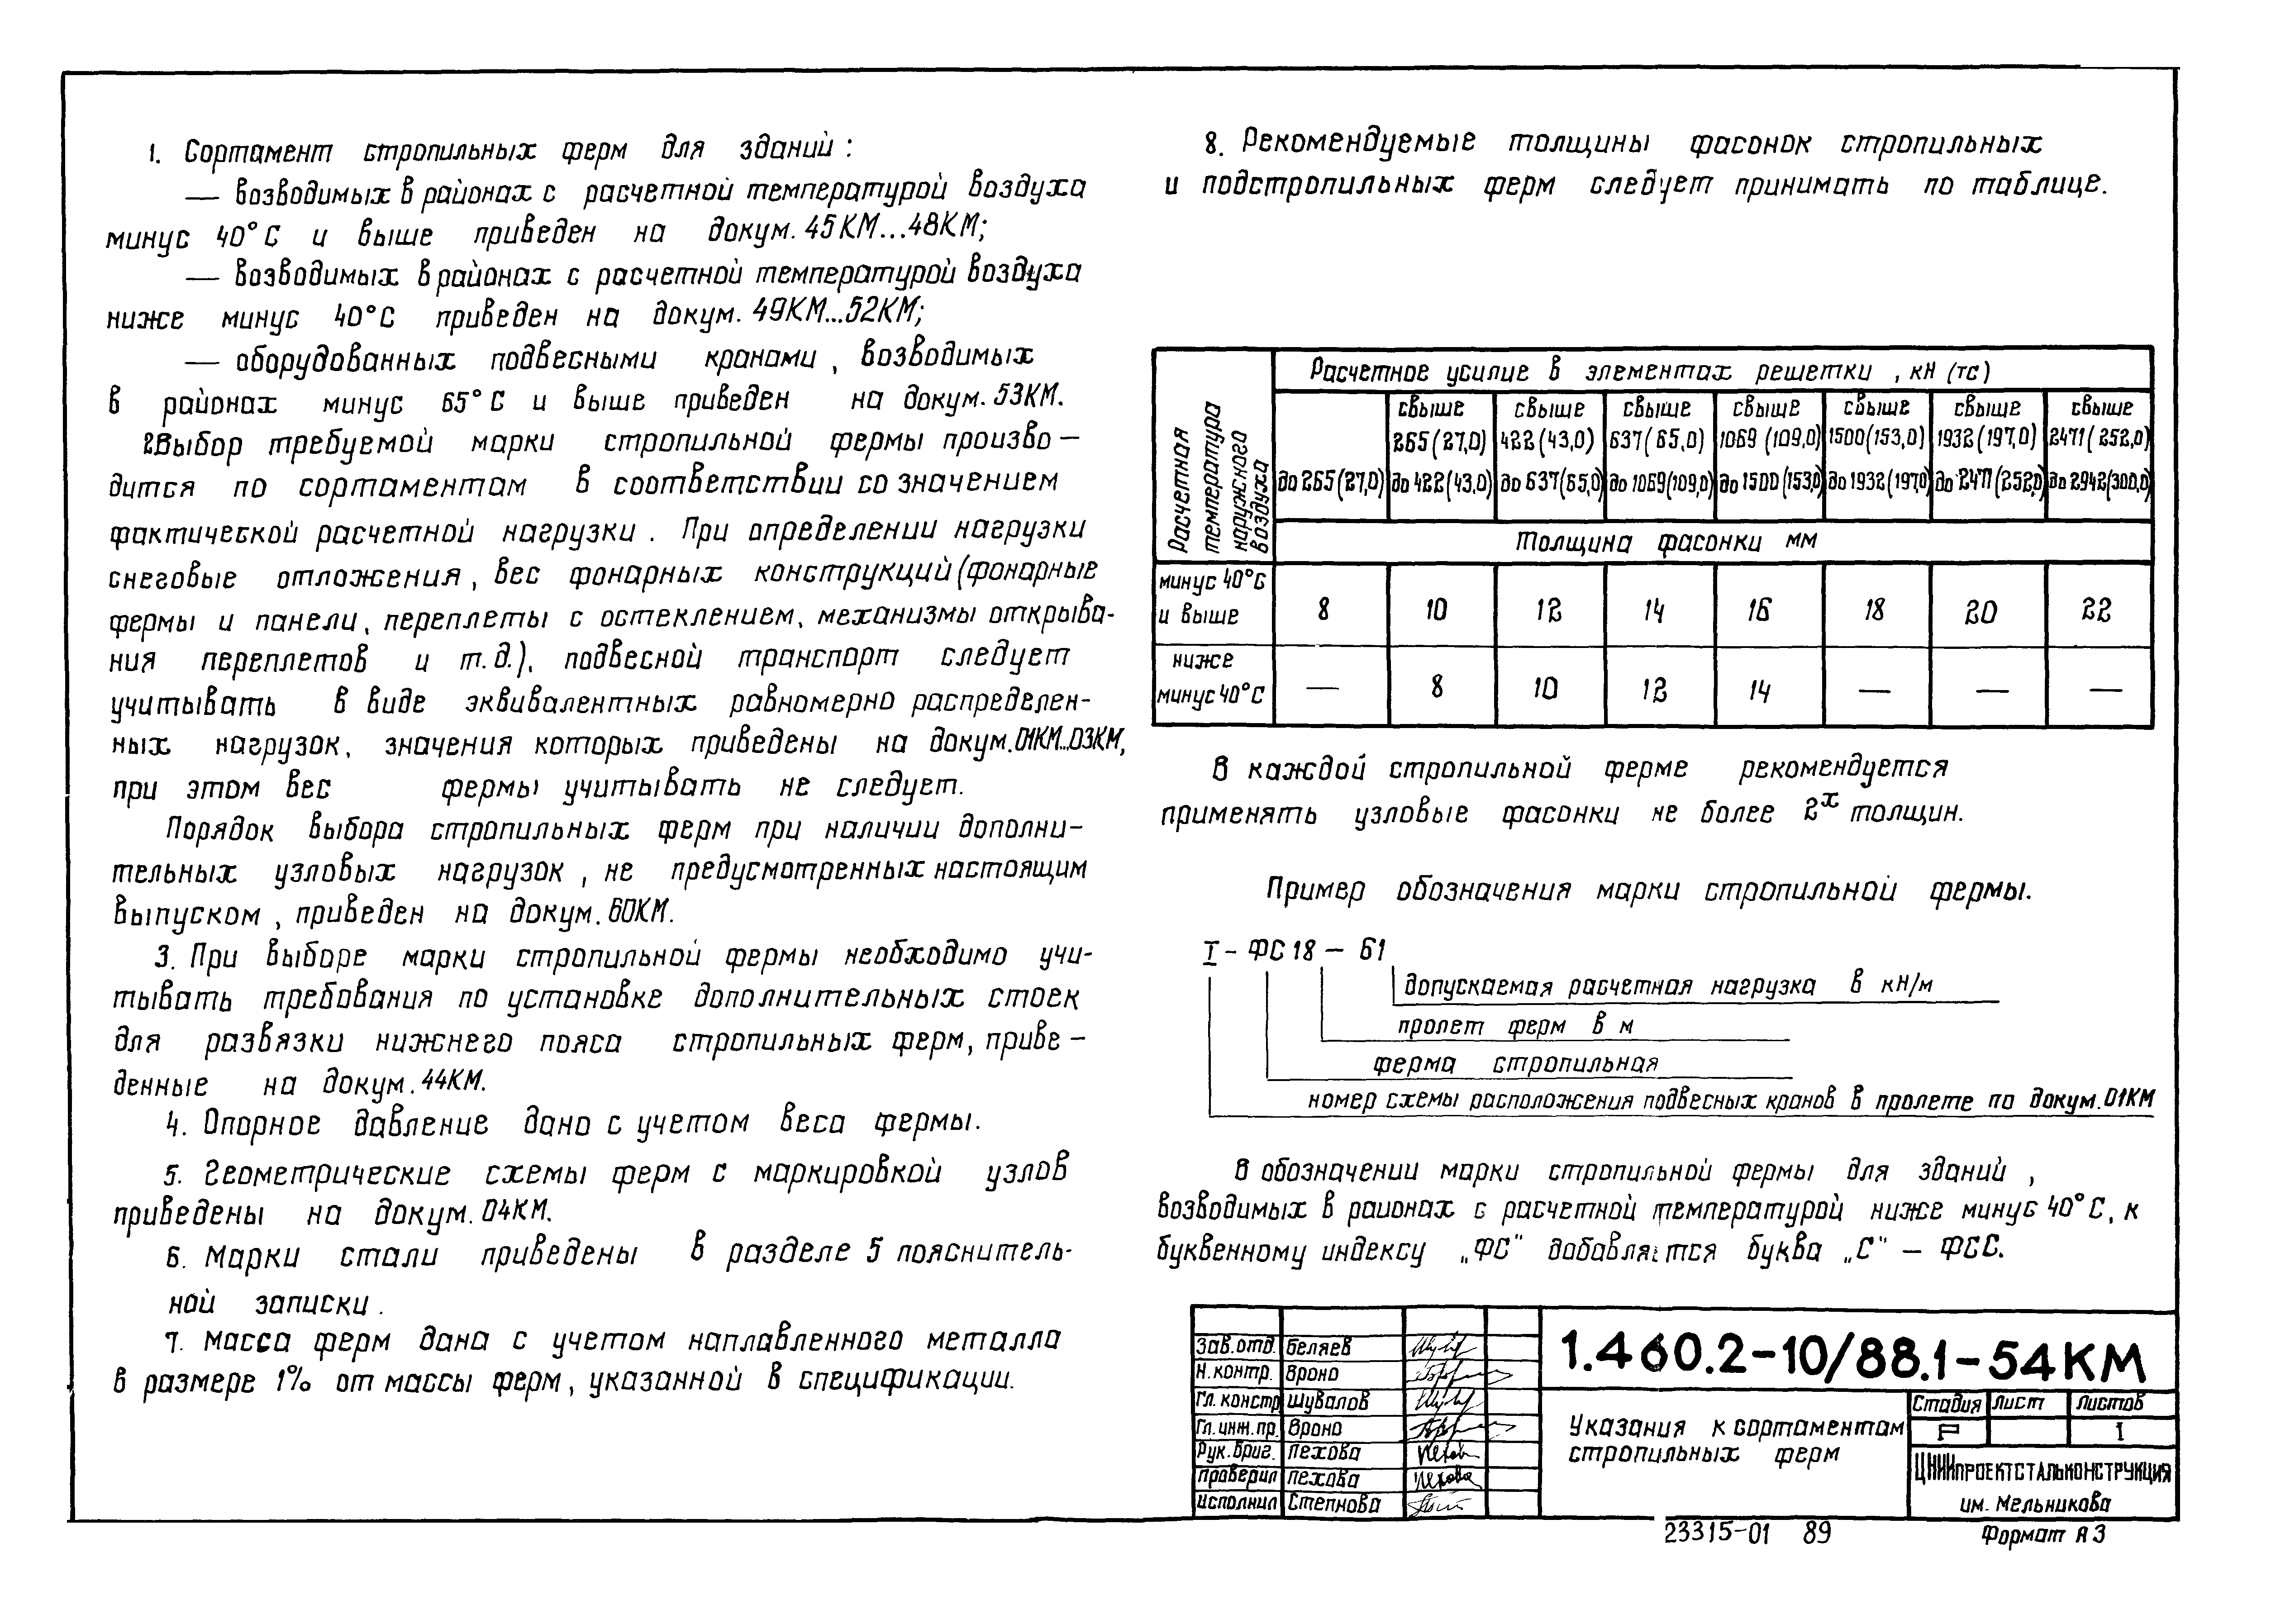 1. Сортамент стропильных ферм для зданий:
— возводимых в районах с расчетной температурой воздуха
минус 40°С и выше приведен на докум. 45КМ...48КМ;
— возводимых в районах с расчетной температурой воздуха
ниже минус 40°С приведен на докум. 49КМ...52КМ;
— оборудованных подвесными кранами, возводимых
в районах минус 65°С и выше приведен на докум. 53КМ.
2. Выбор требуемой марки стропильной фермы произво-
дится по сортаментам в соответствии со значением
фактической расчетной нагрузки. При определении нагрузки
снеговые отложения, вес фонарных конструкций (фонарные
фермы и панели, переплеты с остеклением, механизмы открыва-
ния переплетов и т.д.), подвесной транспорт следует
учитывать в виде эквивалентных равномерно распределен-
ных нагрузок, значения которых приведены на докум. 01КМ...03КМ,
при этом вес фермы учитывать не следует.
Порядок выбора стропильных ферм при наличии дополни-
тельных узловых нагрузок, не предусмотренных настоящим
выпуском, приведен на докум. 60КМ.
3. При выборе марки стропильной фермы необходимо учи-
тывать требования по установке дополнительных стоек
для развязки нижнего пояса стропильных ферм, приве-
денные на докум. 44КМ.
4. Опорное давление дано с учетом веса фермы.
5. Геометрические схемы ферм с маркировкой узлов
приведены на докум. 04КМ.
6. Марки стали приведены в разделе 5 пояснитель-
ной записки.
7. Масса ферм дана с учетом наплавленного металла
в размере 1% от массы ферм, указанной в спецификации.
8. Рекомендуемые толщины фасонок стропильных
и подстропильных ферм следует принимать по таблице.
Расчетная температура наружного воздуха
Расчетное усилие в элементах решетки, кН (тс)
до 265 (27,0)
свыше 265 (27,0) до 422 (43,0)
свыше 422 (43,0) до 637 (65,0)
свыше 637 (65,0) до 1069 (109,0)
свыше 1069 (109,0) до 1500 (153,0)
свыше 1500 (153,0) до 1932 (197,0)
свыше 1932 (197,0) до 2471 (252,0)
свыше 2471 (252,0) до 2942 (300,0)
Толщина фасонки мм
минус 40°С и выше 8 10 12 14 16 18 20 22
ниже минус 40°С — 8 10 12 14 — — —
В каждой стропильной ферме рекомендуется
применять узловые фасонки не более 2х толщин.
Пример обозначения марки стропильной фермы.
I - ФС 18 - 61
допускаемая расчетная нагрузка в кН/м
пролет ферм в м
ферма стропильная
номер схемы расположения подвесных кранов в пролете по докум. 01КМ
В обозначении марки стропильной фермы для зданий,
возводимых в районах с расчетной температурой ниже минус 40°С, к
буквенному индексу „ФС" добавляется буква „С" - ФСС.
Зав. отд. Беляев
Н. контр. Вроно
Гл. констр Шувалов
Гл. инж. пр. Вроно
Рук. бриг. Пехова
Проверил Пехова
Исполнил Степнова
1.460.2-10/88.1-54КМ
Указания к сортаментам
стропильных ферм
Стадия Лист Листов
Р 1
ЦНИИПРОЕКТСТАЛЬКОНСТРУКЦИЯ
им. Мельникова
23315-01 89
Формат А3